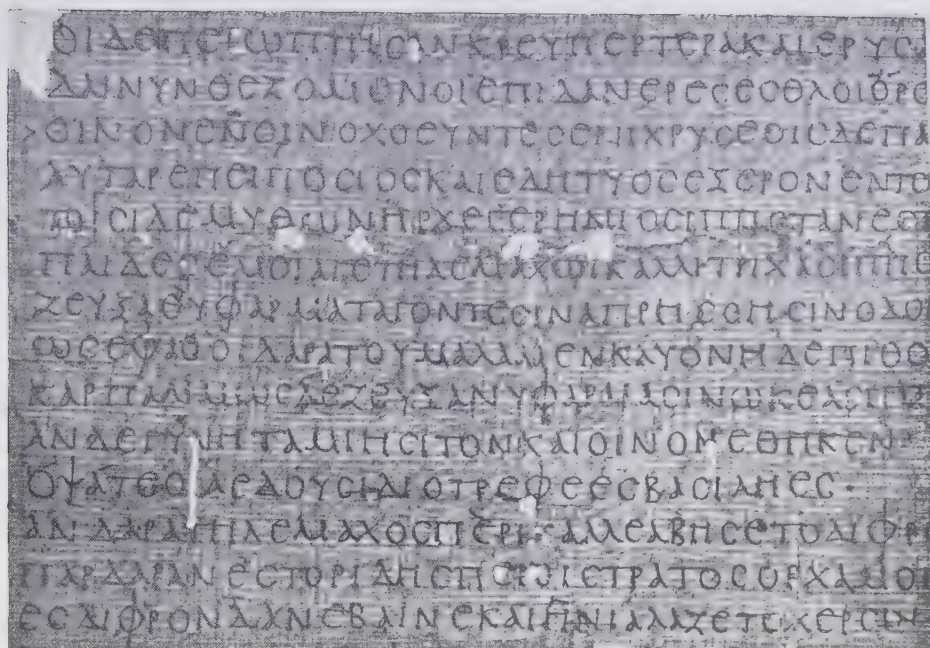 ΟΙΔΕΠΕΙΩΠΤΗCΑΝΚΡΕΥΠΕΡΤΕΡΑΚΑΙΕΡΥCΑ
ΔΑΙΝΥΝΘΕΖΟΜΕΝΟΙΕΠΙΔΑΝΕΡΕCΕCΘΛΟΙΟΡΟ
ΟΙΝΟΝΕΝΟΙΝΟΧΟΕΥΝΤΕCΕΝΙΧΡΥCΕΟΙCΔΕΠΑ
ΑΥΤΑΡΕΠΕΙΠΟCΙΟCΚΑΙΕΔΗΤΥΟCΕΞΕΡΟΝΕΝΤΟ
ΤΟΙCΙΔΕΜΥΘΩΝΗΡΧΕΓΕΡΗΝΙΟCΙΠΠΟΤΑΝΕCΤ
ΠΑΙΔΕCΕΜΟΙΑΓΕΤΗΛΕΜΑΧΩΙΚΑΛΛΙΤΡΙΧΑCΙΠΠΟ
ΖΕΥΞΑΘΥΦΑΡΜΑΤΑΓΟΝΤΕCΙΝΑΠΡΗCCΗCΙΝΟΔΟΙ
ΩCΕΦΑΘΟΙΔΑΡΑΤΟΥΜΑΛΑΜΕΝΚΛΥΟΝΗΔΕΠΙΘΟ
ΚΑΡΠΑΛΙΜΩCΔΕΖΕΥΞΑΝΥΦΑΡΜΑCΙΝΩΚΕΑCΙΠΠ
ΑΝΔΕΓΥΝΗΤΑΜΙΗCΙΤΟΝΚΑΙΟΙΝΟΝΕΘΗΚΕΝ
ΟΨΑΤΕΟΙΑΕΔΟΥCΙΔΙΟΤΡΕΦΕΕCΒΑCΙΛΗΕC·
ΑΝΔΑΡΑΤΗΛΕΜΑΧΟCΠΕΡΙΚΑΛΛΕΑΒΗCΕΤΟΔΙΦΡ
ΠΑΡΔΑΡΑΝΕCΤΟΡΙΔΗCΠΕΙCΙCΤΡΑΤΟCΟΡΧΑΜΟ
ΕCΔΙΦΡΟΝΔΑΝΕΒΑΙΝΕΚΑΙΗΝΙΑΛΑΖΕΤΟΧΕΡCΙΝ